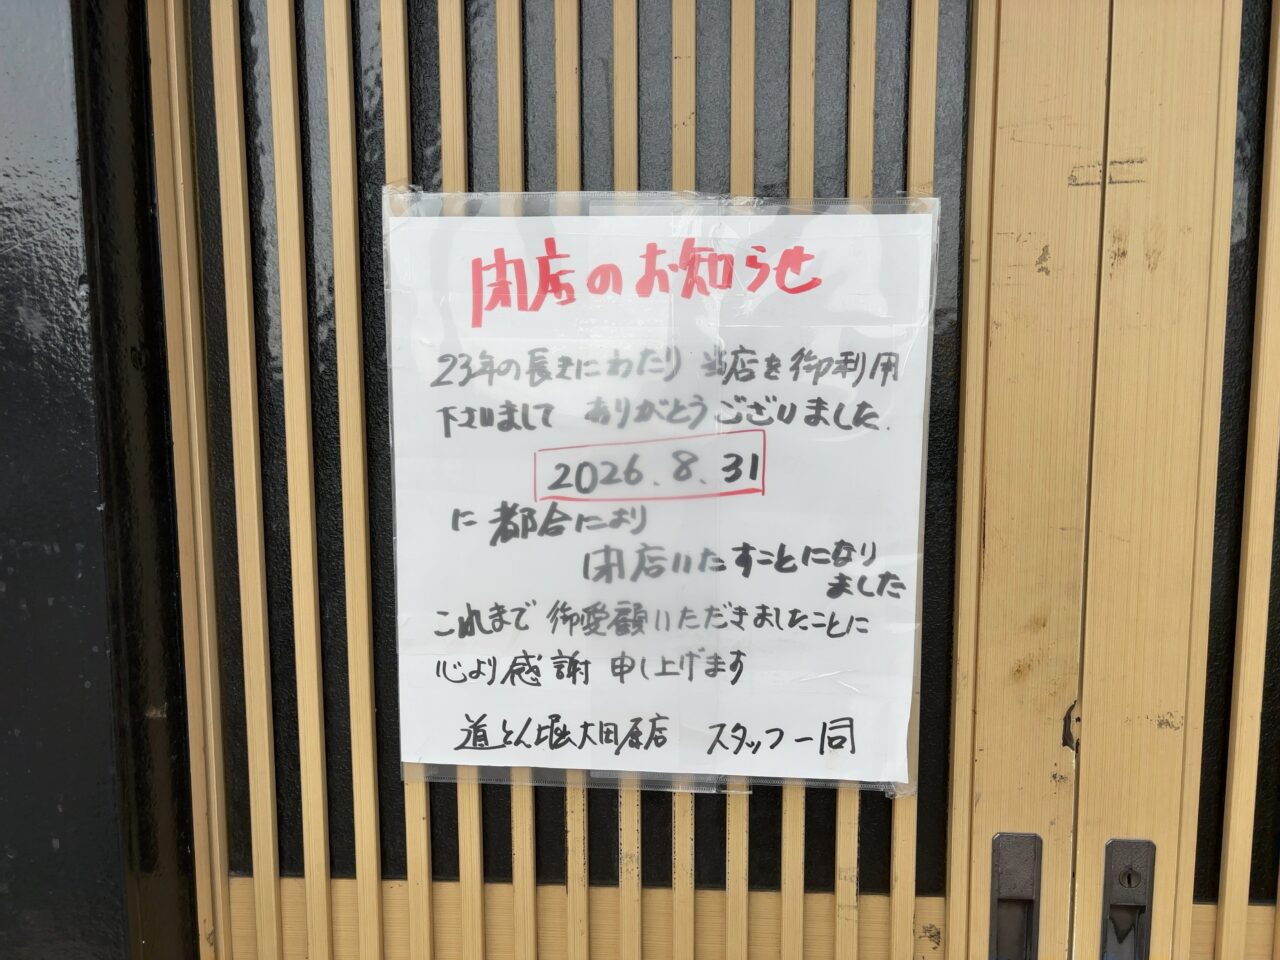 閉店のお知らせ
23年の長きにわたり 当店を御利用
下さいまして ありがとうございました.
2026.8.31
に都合により
閉店いたすことになり
ました
これまで御愛顧いただきましたことに
心より感謝申し上げます
道とん堀大田原店 スタッフ一同